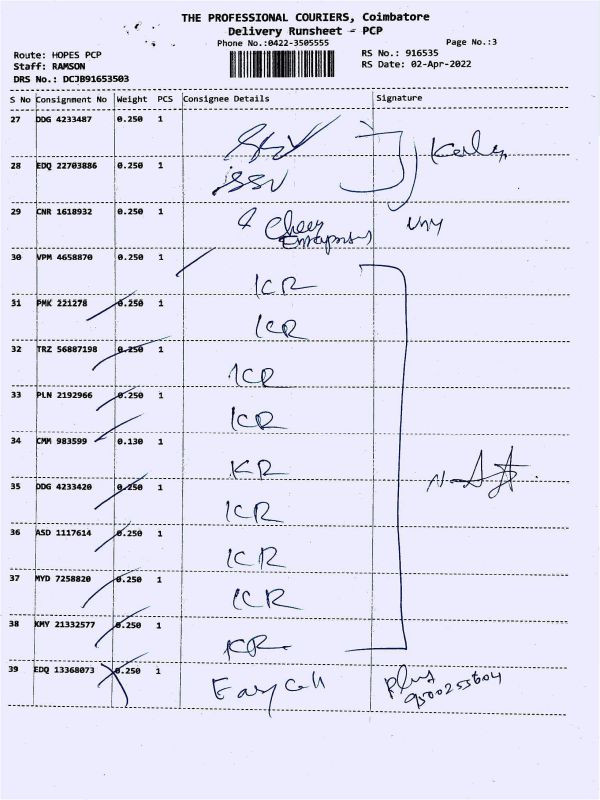 THE PROFESSIONAL COURIERS, Coimbatore
Delivery Runsheet - PCP
Phone No.:0422-3505555
Page No.:3
Route: HOPES PCP
RS No.: 916535
Staff: RAMSON
RS Date: 02-Apr-2022
DRS No.: DCJB91653503
S No Consignment No Weight PCS Consignee Details Signature
27 DDG 4233487 0.250 1
28 EDQ 22703886 0.250 1
29 CNR 1618932 0.250 1 Cheer
30 VPM 4658870 0.250 1 ICR
31 PMK 221278 0.250 1 ICR
32 TRZ 56887198 0.250 1 ICR
33 PLN 2192966 0.250 1 ICR
34 CMM 983599 0.130 1 KR
35 DDG 4233420 0.250 1 ICR
36 ASD 1117614 0.250 1 ICR
37 MYD 7258820 0.250 1 ICR
38 KMY 21332577 0.250 1 KR
39 EDQ 13368073 0.250 1 Easy Call